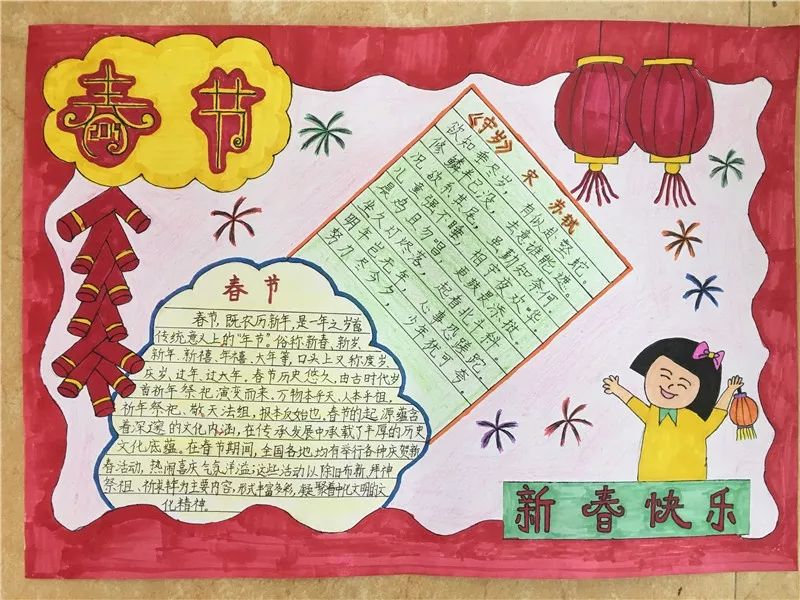 春节
《守岁》 宋 苏轼
欲知垂尽岁,有似赴壑蛇。
修鳞半已没,去意谁能遮。
况欲系其尾,虽勤知奈何。
儿童强不睡,相守夜欢哗。
晨鸡且勿唱,更鼓畏添挝。
坐久灯烬落,起看北斗斜。
明年岂无年,心事恐蹉跎。
努力尽今夕,少年犹可夸。
春节
春节,既农历新年,是一年之岁首
传统意义上的“年节”。俗称新春、新岁、
新年、新禧、年禧、大年等,口头上又称度岁、
庆岁、过年、过大年。春节历史悠久,由古时代岁
首祈年祭祀演变而来。万物本乎天、人本乎祖,
祈年祭祀、敬天法祖,报本反始也。春节的起源蕴含
着深邃的文化内涵,在传承发展中承载了丰厚的历史
文化底蕴。在春节期间,全国各地均有举行各种庆贺新
春活动,热闹喜庆气氛洋溢;这些活动以除旧布新、拜神
祭祖、祈求祥为主要内容,形式丰富多彩,凝聚着中化文明的文
化精神。
新春快乐